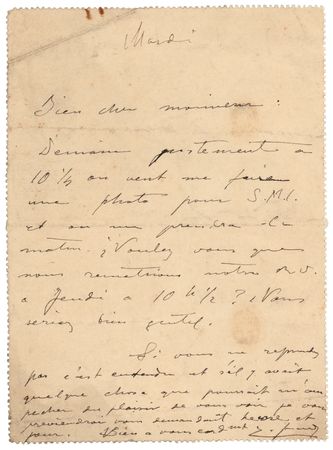 Mardi
Bien cher monsieur :
Demain justement a
10 ½ on vient me faire
une photo pour S.M.I.
et on me prendra la
matin. ¿Voulez vous que
nous remettions notre R.V.
a Jeudi a 10 h ½ ? Vous
seriez bien gentil.
Si vous ne repondez
pas c'est entendu et s'il y avait
quelque chose que pourrait m'em
pecher du plaisir de vous voir je vous
previendrai vous demandant heure et
jour. Bien a vous